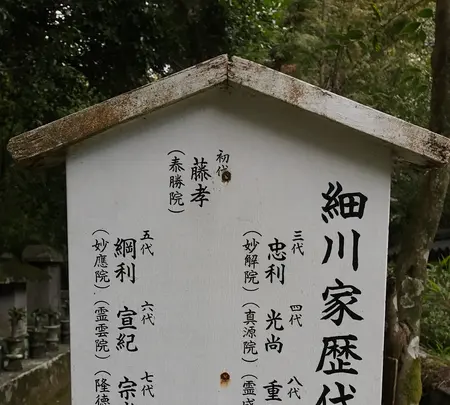 細川家歴代
初代
藤孝
(泰勝院)
三代
忠利
(妙解院)
四代
光尚
(真源院)
八代
重
(霊
五代
綱利
(妙應院)
六代
宣紀
(霊雲院)
七代
宗
(隆徳